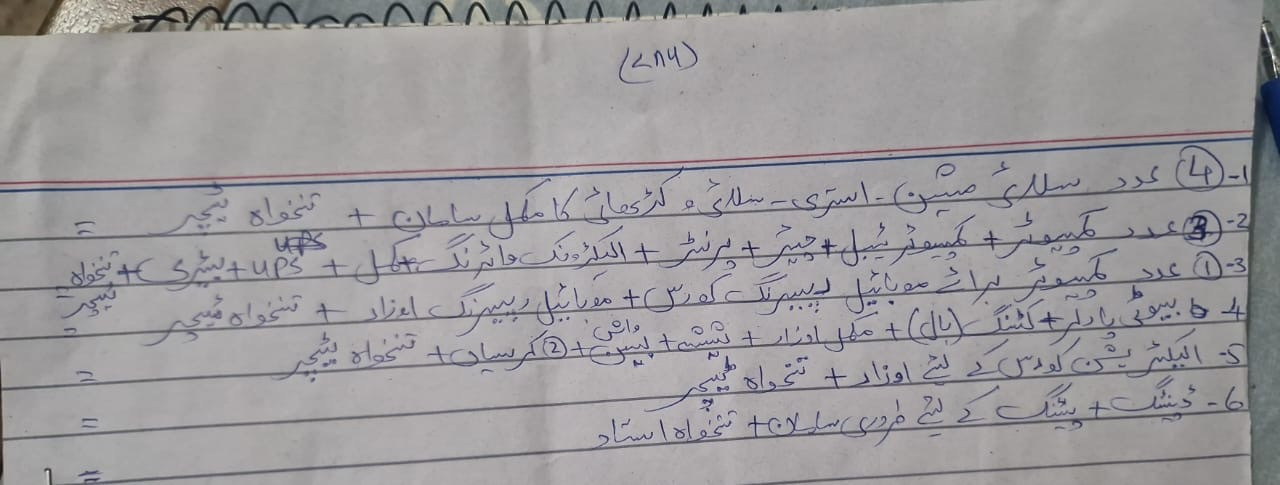 (۷۸۶)
1- ④ عدد سلائی مشین - استری - سلائی و کڑھائی کا مکمل سامان + تنخواہ ٹیچر =
2- ③ عدد کمپیوٹر + کمپیوٹر ٹیبل + چیئر + پرنٹر + الیکٹرونک وائرنگ مکمل + UPS + بیٹری + تنخواہ ٹیچر =
3- ① عدد کمپیوٹر برائے موبائیل ریپیرنگ کورس + موبائیل ریپیرنگ اوزار + تنخواہ ٹیچر =
4- بیوٹی پارلر + کٹنگ (بال) + مکمل اوزار + شیشہ + واش بیسن + ② کرسیاں + تنخواہ ٹیچر =
5- الیکٹریشن کورس کے لیئے اوزار + تنخواہ ٹیچر =
6- ڈینٹنگ + پینٹنگ کے لیئے ضروری سامان + تنخواہ استاد =